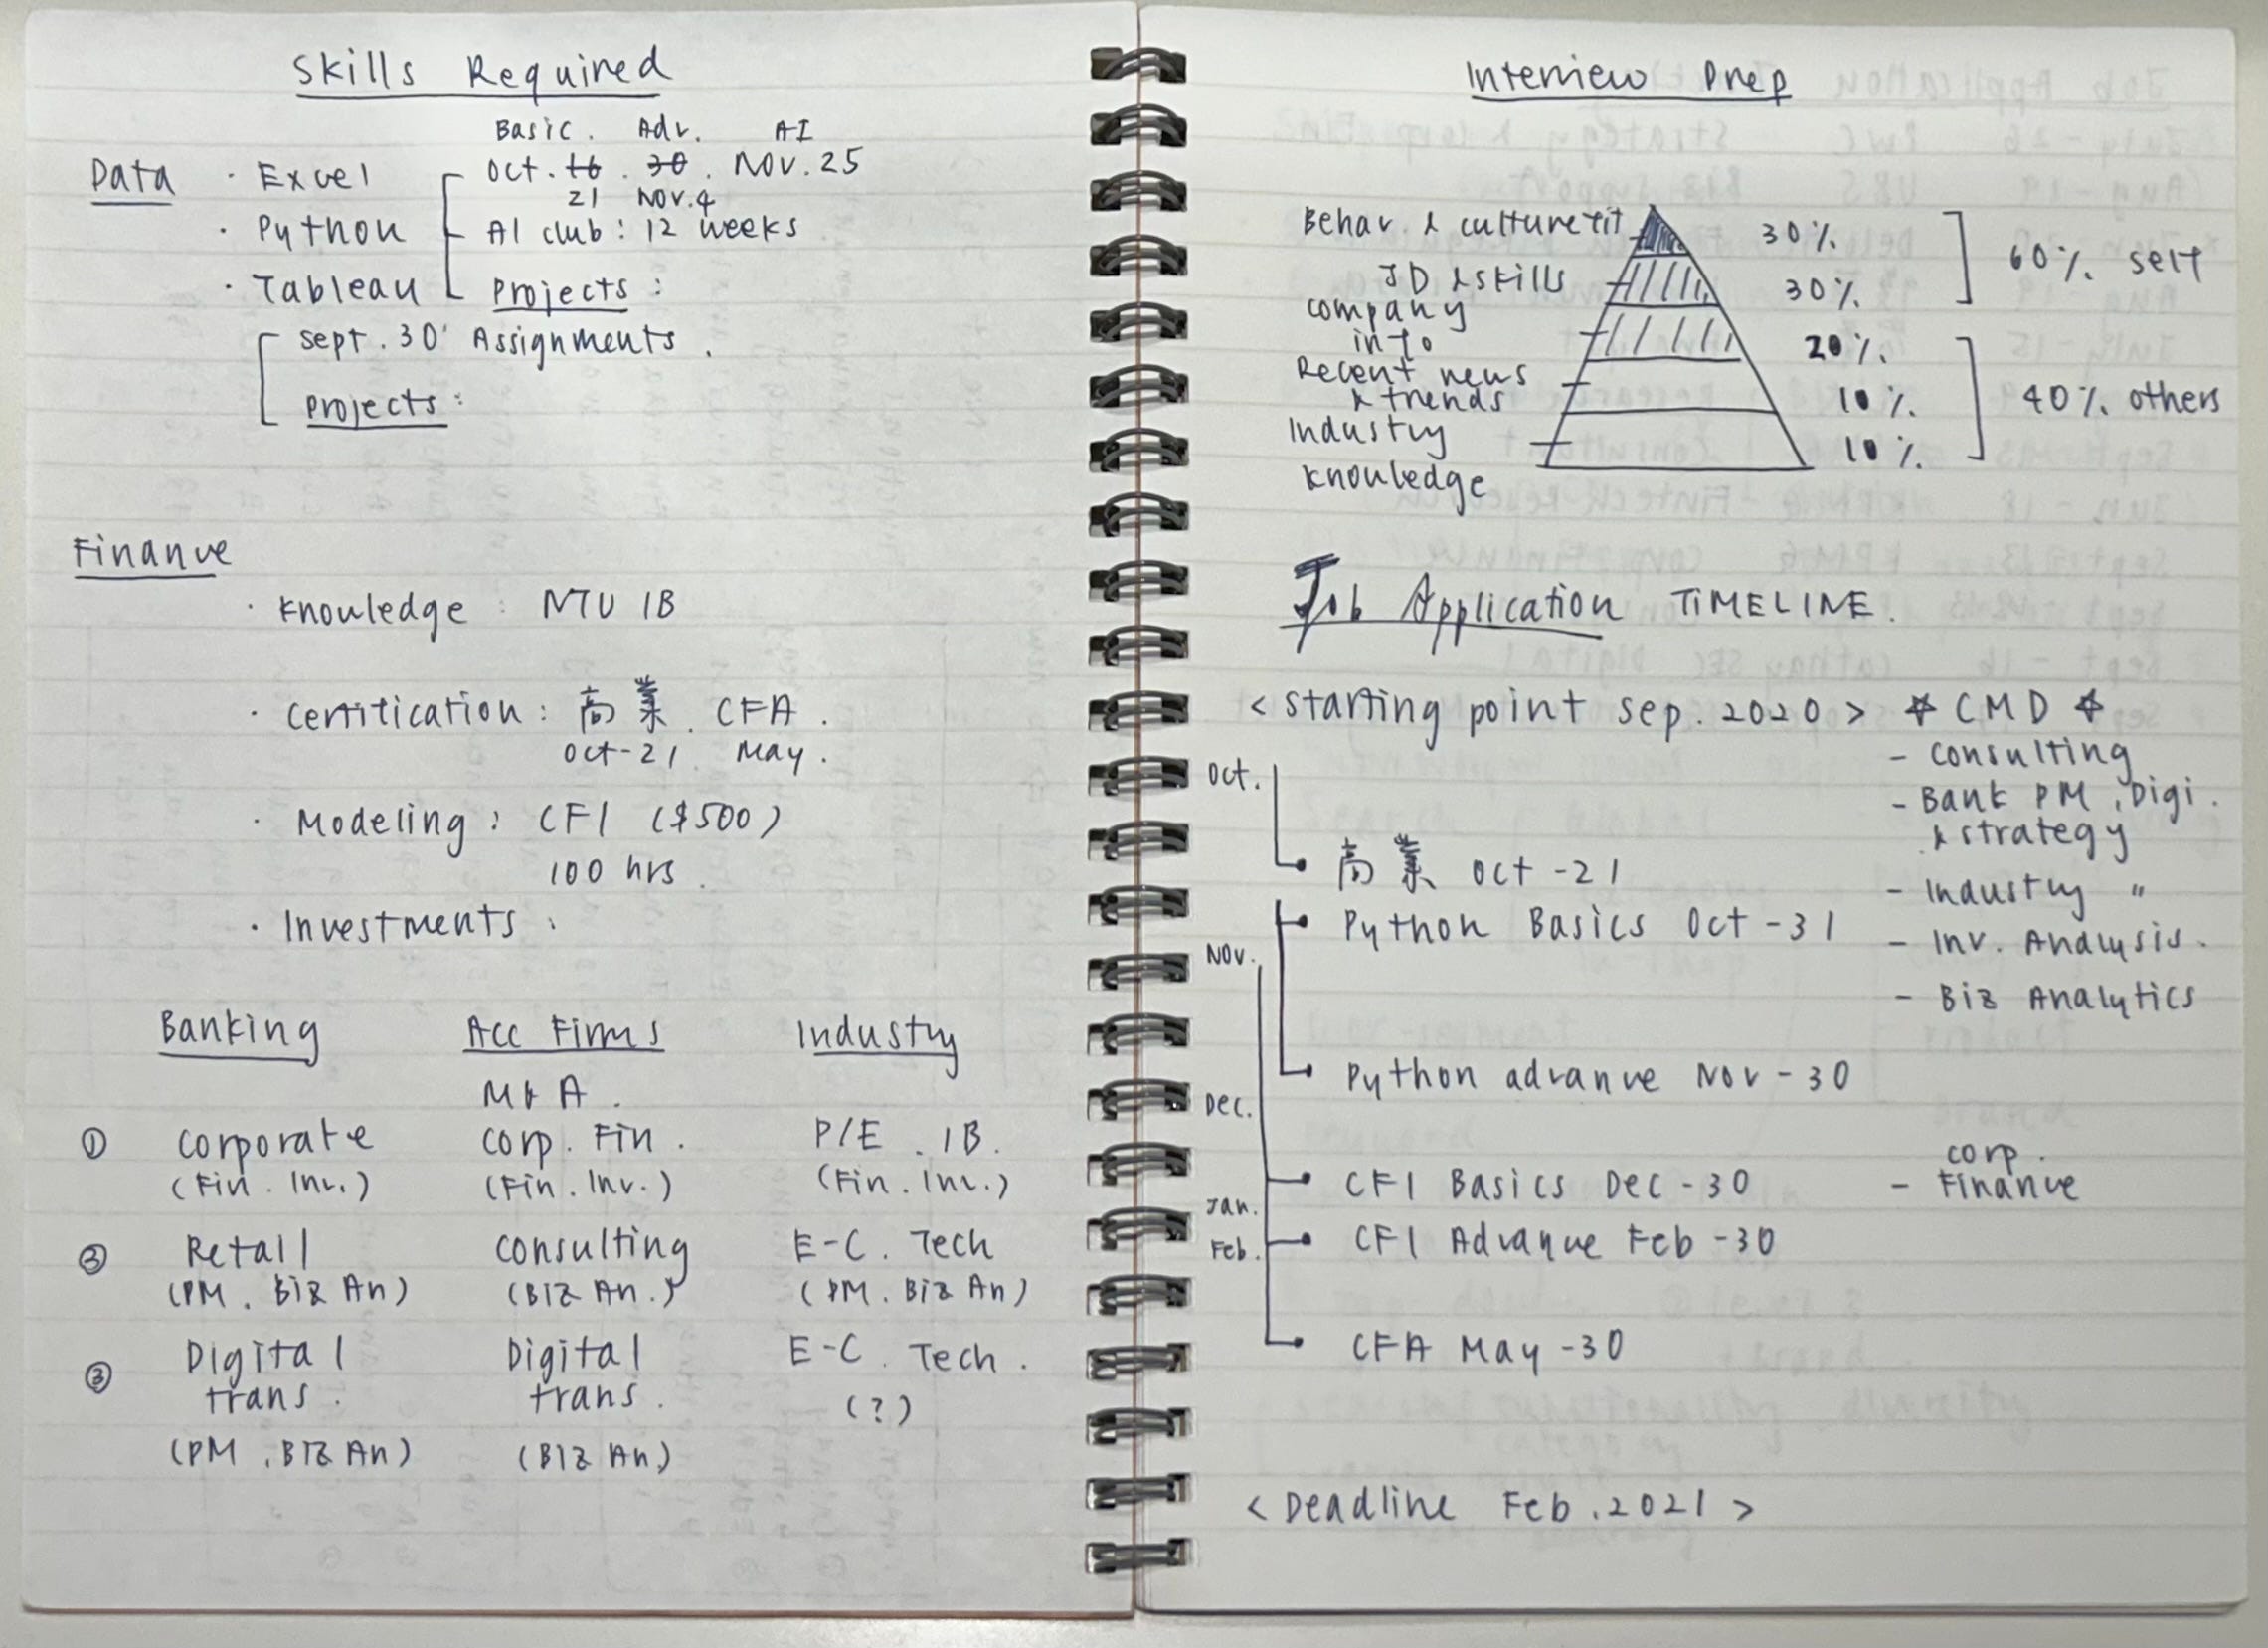 Skills Required
Basic. Adv. AI
Data · Excel Oct. 16. 30. Nov. 25
21 Nov. 4
· Python AI club: 12 weeks
· Tableau Projects:
Sept. 30' Assignments.
Projects:
Finance
· Knowledge: NTU IB
· Certification: 高業. CFA.
Oct-21. May.
· Modeling: CFI ($500)
100 hrs.
· Investments:
Banking Acc Firms Industry
M&A.
① Corporate Corp. Fin. P/E. IB.
(Fin. Inv.) (Fin. Inv.) (Fin. Inv.)
② Retail Consulting E-C. Tech
(PM. Biz An) (Biz An.) (PM. Biz An)
③ Digital Digital E-C. Tech.
trans. trans. (?)
(PM. Biz An) (Biz An)
Interview Prep
Behav. & culture fit 30%
JD & skills 30%
60% self
company
info 20%
Recent news
& trends 10%
40% others
Industry
knowledge 10%
Job Application TIMELINE.
<Starting point Sep. 2020> ☆ CMD ☆
- Consulting
Oct.
- Bank PM, Digi.
& strategy
高業 Oct-21
- Industry "
Python Basics Oct-31
- Inv. Analysis.
Nov.
- Biz Analytics
Python advance Nov-30
Dec.
corp.
CFI Basics Dec-30 - Finance
Jan.
Feb. CFI Advance Feb-30
CFA May-30
<Deadline Feb. 2021>